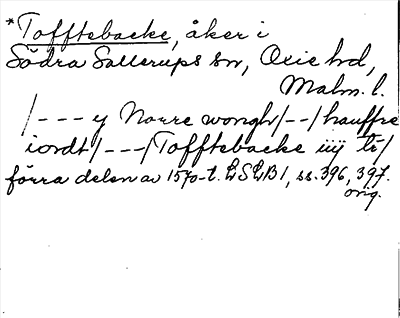 *Tofftebacke, åker i
Södra Sallerups sn, Oxie hd,
Malm. l.
/--- y Norre wongh/--/hauffre
iordt/---/Tofftebacke iiij tr/
förra delen av 1570-t. LSLB1, ss. 396, 397.
orig.